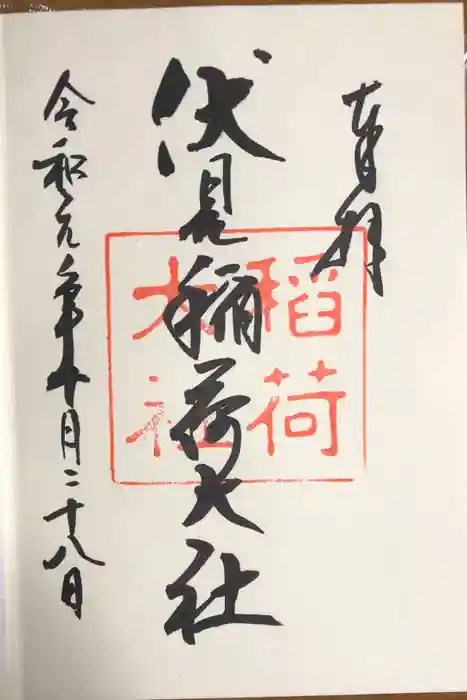 奉拝
伏見稲荷大社
令和元年十月二十八日
稲荷
大社